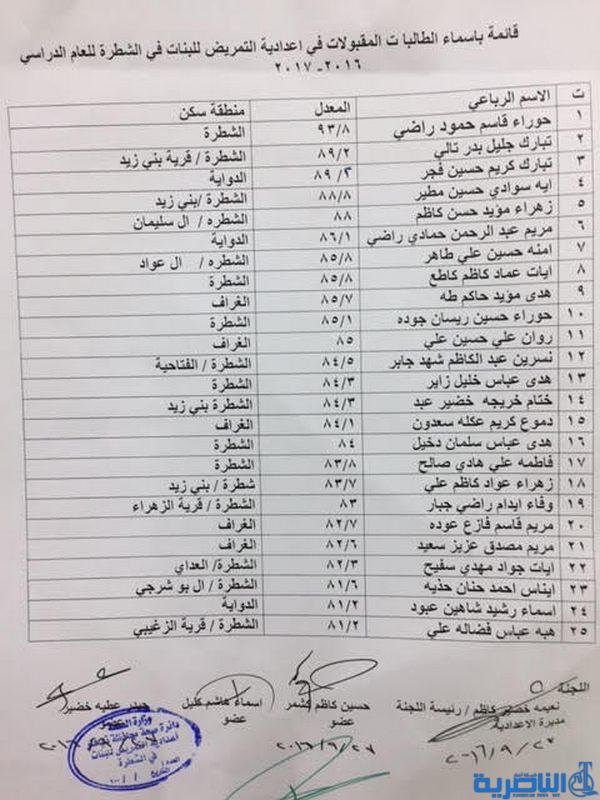 قائمة باسماء الطالبات المقبولات في اعدادية التمريض للبنات في الشطرة للعام الدراسي
٢٠١٦-٢٠١٧
ت الاسم الرباعي المعدل منطقة سكن
١ حوراء قاسم حمود راضي ٩٣/٨ الشطرة
٢ تبارك جليل بدر تالي ٨٩/٢ الشطرة / قرية بني زيد
٣ تبارك كريم حسين فجر ٨٩/٢ الدواية
٤ ايه سوادي حسين مطير ٨٨/٨ الشطرة /بني زيد
٥ زهراء مؤيد حسن كاظم ٨٨ الشطره/ ال سليمان
٦ مريم عبد الرحمن حمادي راضي ٨٦/١ الدواية
٧ امنه حسين علي طاهر ٨٥/٨ الشطره/ ال عواد
٨ ايات عماد كاظم كاطع ٨٥/٨ الشطرة
٩ هدى مؤيد حاكم طه ٨٥/٧ الغراف
١٠ حوراء حسين ريسان جوده ٨٥/١ الشطرة
١١ روان علي حسين علي ٨٥ الغراف
١٢ نسرين عبد الكاظم شهد جابر ٨٤/٥ الشطرة / الفتاحية
١٣ هدى عباس خليل زاير ٨٤/٣ الشطرة
١٤ ختام خريجه خضير عبد ٨٤/٣ الشطرة بني زيد
١٥ دموع كريم عكله سعدون ٨٤/١ الغراف
١٦ هدى عباس سلمان دخيل ٨٤ الشطرة
١٧ فاطمه علي هادي صالح ٨٣/٨ الشطرة
١٨ زهراء عواد كاظم علي ٨٣/٧ شطرة / بني زيد
١٩ وفاء ايدام راضي جبار ٨٣ الشطرة / قرية الزهراء
٢٠ مريم قاسم فازع عوده ٨٢/٧ الغراف
٢١ مريم مصدق عزيز سعيد ٨٢/٦ الغراف
٢٢ ايات جواد مهدي سفيح ٨٢/٣ الشطرة/ العداي
٢٣ ايناس احمد حنان حذيه ٨١/٦ الشطرة / ال بو شرجي
٢٤ اسماء رشيد شاهين عبود ٨١/٢ الدواية
٢٥ هبه عباس فضاله علي ٨١/٢ الشطرة/ قرية الزغيبي
اللجنة
نعيمه خضير كاظم / رئيسة اللجنة حسين كاظم شمر اسماء هاشم كليل حيدر عطيه خضير
مديرة الاعدادية عضو عضو
٢٠١٦/٩/٢٧ ٢٠١٦/٩/٢٧
وزارة الصحة
اعدادية التمريض للبنات
في الشطرة
الناصرية